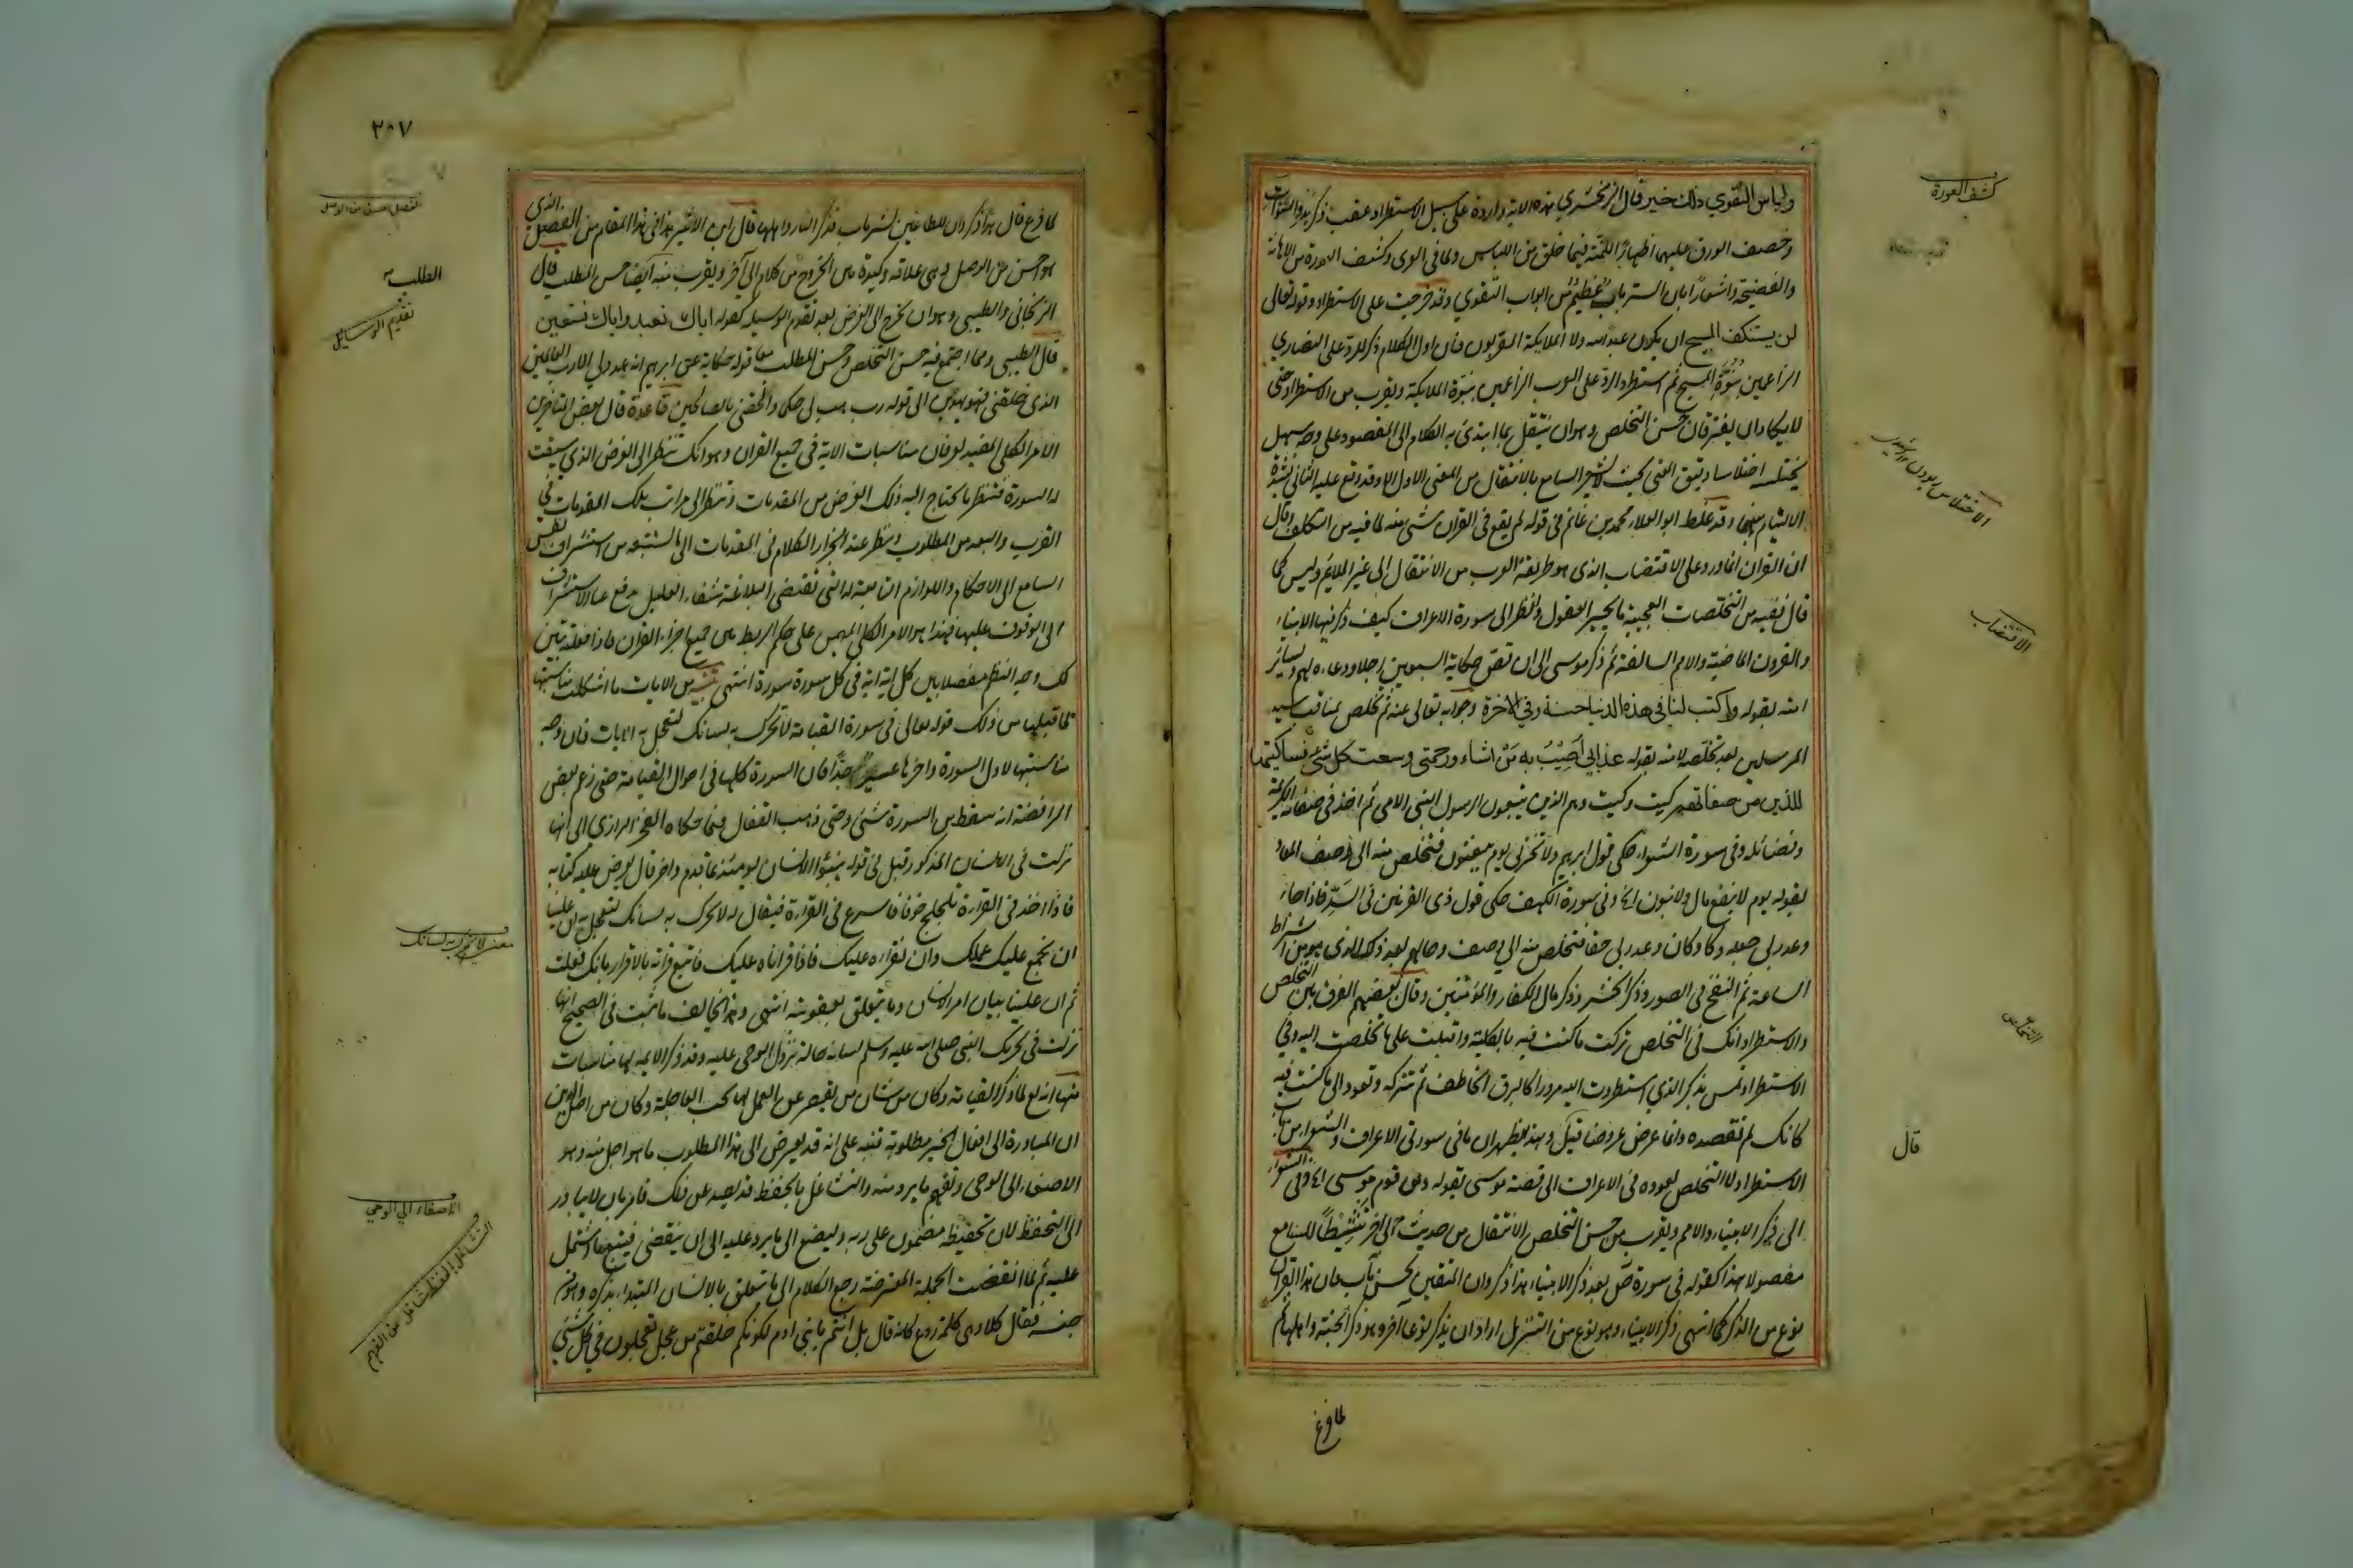 ولباس التقوي ذلك خير قال الزمخشري هذه الاية واردة على سبيل الاستطراد عقب ذكر بدو السوآت
وخصف الورق عليها اظهارًا للمنة فيما خلق من اللباس ولما في العرى وكشف العورة من الاهانة
والفضيحة واشعارًا بان الستر باب عظيم من ابواب التقوي وقد خرجت على الاستطراد قوله تعالى
لن يستنكف المسيح ان يكون عبدا لله ولا الملايكة المقربون فان اول الكلام ذكر للرد على النصاري
الزاعمين بنوة المسيح ثم استطرد الرد على العرب الزاعمين بنوة الملايكة ويقرب من الاستطراد حتى
لا يكادان يفترقان حسن التخلص وهو ان ينتقل مما ابتدئ به الكلام الى المقصود على وجه سهل
يختلسه اختلاسا دقيق المعنى بحيث لا يشعر السامع بالانتقال من المعنى الاول الا وقد وقع عليه الثانى لشدة
الالتيام بينهما وقد غلط ابو العلاء محمد بن غانم في قوله لم يقع في القران منه شئ لما فيه من التكلف وقال
ان القران انما ورد على الاقتضاب الذى هو طريقة العرب من الانتقال الى غير الملايم وليس كما
قال ففيه من التخلصات العجيبة ما يحير العقول وانظر الى سورة الاعراف كيف ذكر فيها الانبياء
والقرون الماضية والامم السالفة ثم ذكر موسى الى ان قص حكاية السبعين رجلا ودعاءه لهم ولسائر
امته بقوله واكتب لنا في هذه الدنيا حسنة وفي الاخرة وجوابه تعالى عنه ثم تخلص بمناقب سيد
المرسلين بعد تخلصه لامته بقوله عذابي اصيب به من اشاء ورحمتي وسعت كل شئ فساكتبها
للذين من صفاتهم كيت وكيت وهم الذين يتبعون الرسول النبي الامي ثم اخذ في صفاته الكريمة
وفضائله وفي سورة الشعراء حكى قول ابراهيم ولا تخزني يوم يبعثون فتخلص منه الى وصف المعاد
بقوله يوم لا ينفع مال ولا بنون الخ وفي سورة الكهف حكى قول ذي القرنين في السد فاذا جاء
وعد ربي جعله دكا وكان وعد ربي حقا فتخلص منه الى وصف حالهم بعد دكه الذي هو من اشراط
الساعة ثم النفخ في الصور وذكر الحشر وذكر مال الكفار والمؤمنين وقال بعضهم الفرق بين التخلص
والاستطراد انك في التخلص تركت ما كنت فيه بالكلية واقبلت على ما تخلصت اليه وفي
الاستطراد تمر بذكر الذي استطردت اليه مرورا كالبرق الخاطف ثم تتركه وتعود الى ما كنت فيه
كانك لم تقصده وانما عرض عروضا قيل وبهذا يظهر ان ما في سورتي الاعراف والشعراء من باب
الاستطراد لا التخلص لعوده في الاعراف الى قصة موسى بقوله ومن قوم موسى الخ وفي الشعراء
الى ذكر الانبياء والامم ويقرب من حسن التخلص الانتقال من حديث الى اخر تنشيطًا للسامع
مفصولا بهذا كقوله في سورة ص بعد ذكر الانبياء هذا ذكر وان للمتقين لحسن مآب فان هذا القران
نوع من الذكر لما انتهى ذكر الانبياء وهو نوع من التنزيل اراد ان يذكر نوعا آخر وهو ذكر الجنة واهلها ثم
لما فرغ
كشف العورة
الاقتضاب
التخلص
قال
٢٠٧
لما فرغ قال هذا ذكر وان للطاغين لشر مآب فذكر النار واهلها قال ابن الاثير هذا في هذا المقام من الفصل الذي
هو احسن من الوصل وهي علاقة وكيدة بين الخروج من كلام الى آخر ويقرب منه ايضا حسن المطلب قال
الزنجاني والطيبي وهو ان يخرج الى الغرض بعد تقدم الوسيلة كقوله اياك نعبد واياك نستعين
قال الطيبي ومما اجتمع فيه حسن التخلص وحسن المطلب معا قوله حكاية عن ابرهيم فانهم عدو لي الا رب العالمين
الذى خلقني فهو يهدين الى قوله رب هب لي حكما والحقني بالصالحين قاعدة قال بعض المتاخرين
الامر الكلي المفيد لعرفان مناسبات الاية في جميع القران وهو انك تنظر الى الغرض الذي سيقت
له السورة فتنظر ما يحتاج اليه ذلك الغرض من المقدمات وتنظر الى مراتب تلك المقدمات في
القرب والبعد من المطلوب وتنظر عند انجرار الكلام في المقدمات الى ما يستتبعه من استشراف نفس
السامع الى الاحكام واللوازم التابعة له التي تقتضي البلاغة شفاء الغليل بدفع عنا الاستشراف
الى الوقوف عليها فهذا هو الامر الكلي المهيمن على حكم الربط بين جميع اجزاء القران فاذا فعلته تبين
لك وجه النظم مفصلا بين كل اية اية في كل سورة سورة انتهى تنبيه من الايات ما اشكلت مناسبتها
لما قبلها من ذلك قوله تعالى في سورة القيامة لا تحرك به لسانك لتعجل به الايات فان وجه
مناسبتها لاول السورة واخرها عسير جدًا فان السورة كلها في احوال القيامة حتى زعم بعض
الرافضة انه سقط من السورة شئ وحتى ذهب القفال فيما حكاه الفخر الرازي الى انها
نزلت في الانسان المذكور قبل في قوله ينبؤا الانسان يومئذ بما قدم واخر قال يعرض عليه كتابه
فاذا اخذ في القراءة تلجلج خوفا فاسرع في القراءة فيقال له لا تحرك به لسانك لتعجل به ان علينا
ان نجمع عليك عملك وان نقراه عليك فاذا قراناه عليك فاتبع قرآنه بالاقرار بانك فعلت
ثم ان علينا بيان امر الانسان وما يتعلق بعقوبته انتهى وهذا يخالف ما ثبت في الصحيح انها
نزلت في تحريك النبي صلى الله عليه وسلم لسانه حالة نزول الوحي عليه وقد ذكر الايمه لها مناسبات
منها انه تع لما ذكر القيامة وكان من شان من يقصر عن العمل لها حب العاجلة وكان من اصل الدين
ان المبادرة الى افعال الخير مطلوبة فنبه على انه قد يعرض الى هذا المطلوب ما هو اجل منه وهو
الاصغاء الى الوحي وتفهم ما يرد منه والتشاغل بالحفظ قد يصد عن ذلك فامر بان لا يبادر
الى التحفظ لان تحفيظه مضمون على ربه وليصغ الى ما يرد عليه الى ان ينقضي فيتبع ما اشتمل
عليه ثم لما انقضت الجملة المعترضة رجع الكلام الى ما يتعلق بالانسان المبتداء بذكره وهو من
جنسه فقال كلا وهي كلمة ردع كانه قال بل انتم يا بني ادم لكونكم خلقتم من عجل تعجلون في كل شئ
الطلب
تقديم الوسايل
الاصغاء الي الوحي